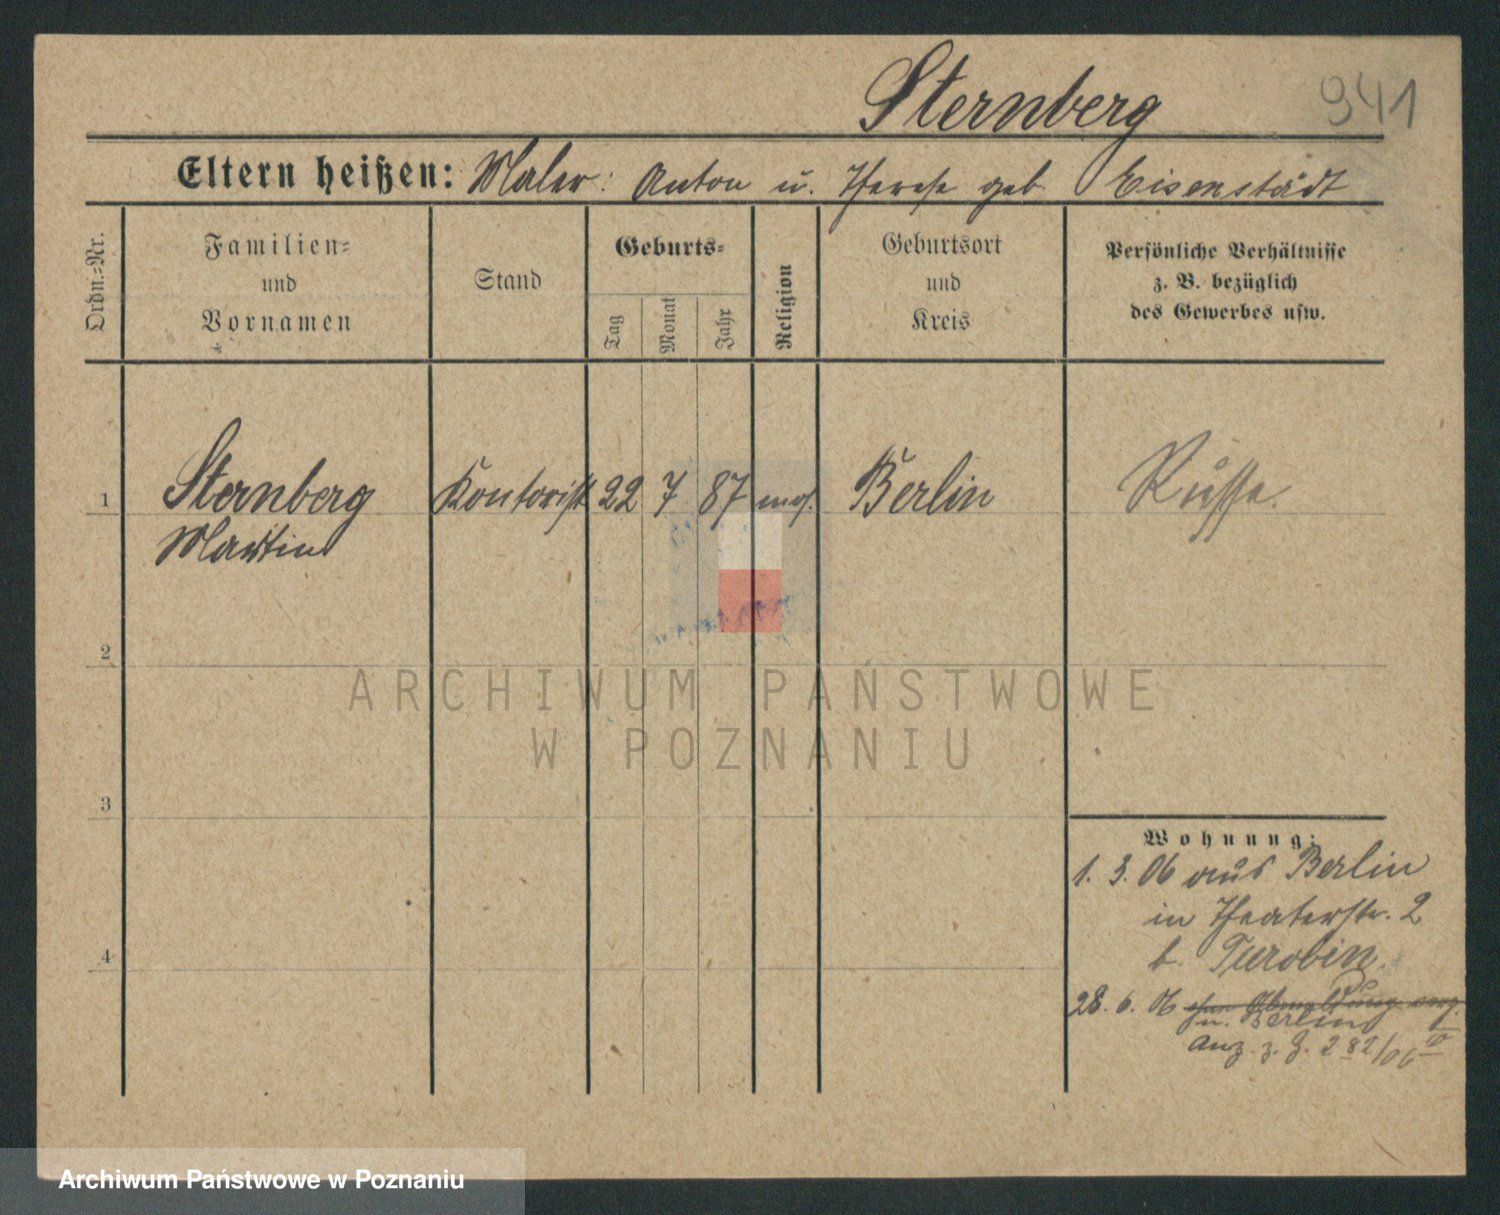 941
Sternberg
Eltern heißen: Maler: Anton u. Therese geb. Eisenstädt
Ordn.=Nr.
Familien=
und
Vornamen
Stand
Geburts=
Tag
Monat
Jahr
Religion
Geburtsort
und
Kreis
Persönliche Verhältnisse
z. B. bezüglich
des Gewerbes usw.
1 Sternberg Kontorist 22 7 87 mos. Berlin Russe.
Martin
2
ARCHIWUM PAŃSTWOWE
W POZNANIU
3
Wohnung:
1. 3. 06 aus Berlin
in Theaterstr. 2
b. Turobin.
4
28. 6. 06 ohne Abmeldung verz.
n. Berlin
Anz. z. J. 282/06
Archiwum Państwowe w Poznaniu